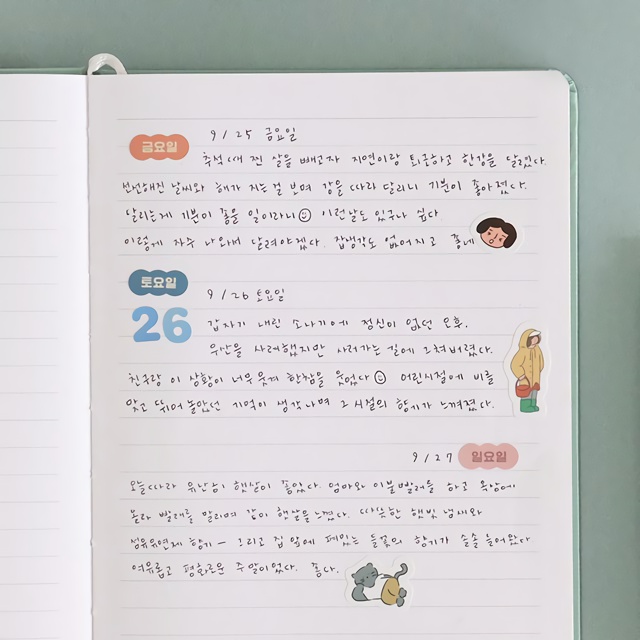 금요일
9/25 금요일
추석 때 찐 살을 빼고자 지연이랑 퇴근하고 한강을 달렸다.
선선해진 날씨와 해가 지는 걸 보며 강을 따라 달리니 기분이 좋아졌다.
달리는게 기분이 좋을 일이라니☺ 이런날도 있구나 싶다
이렇게 자주 나와서 달려야겠다. 잡생각도 없어지고 좋네
토요일
26
9/26 토요일
갑자기 내린 소나기에 정신이 없던 오후.
우산을 사려했지만 사러가는 길에 그쳐버렸다.
친구랑 이 상황이 너무 웃겨 한참을 웃었다☺ 어린시절에 비를
맞고 뛰어 놀았던 기억이 생각나며 그 시절의 향기가 느껴졌다.
9/27
일요일
오늘따라 유난히 햇살이 좋았다. 엄마와 이불빨래를 하고 옥상에
올라 빨래를 말리며 같이 햇살을 느꼈다. 따뜻한 햇빛 냄새와
섬유유연제 향기ー 그리고 집 앞에 펴있는 들꽃의 향기가 솔솔 들어왔다
여유롭고 평화로운 주말이었다. 좋다.